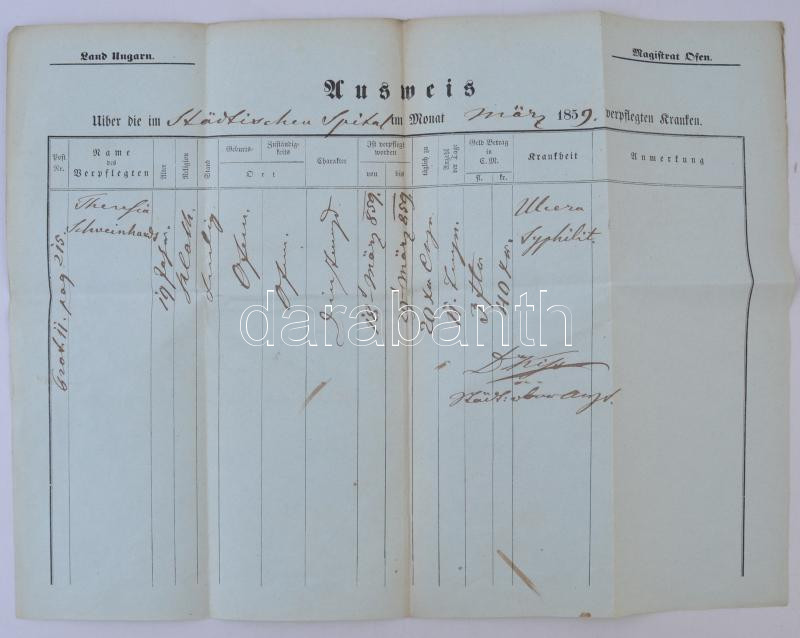 Land Ungarn.
Magistrat Ofen.
Ausweis
Uiber die im Städtischen Spital im Monat März 1859. verpflegten Kranken.
Post Nr.
Name des Verpflegten
Alter
Religion
Stand
Geburts-
Zuständigkeits
Ort
Charakter
Ist verpflegt worden
von
bis
täglich zu
Anzahl der Tage
Geld Betrag in C. M.
fl.
kr.
Krankheit
Anmerkung
Prot. II. pag 215.
Theresia
Schweinhards
19 Jahr
Kath.
Ledig
Ofen.
Ofen.
März 859.
März 859.
20 xr
40 xr.
Ulcera
Syphilit.
Dr Kiss
darabanth